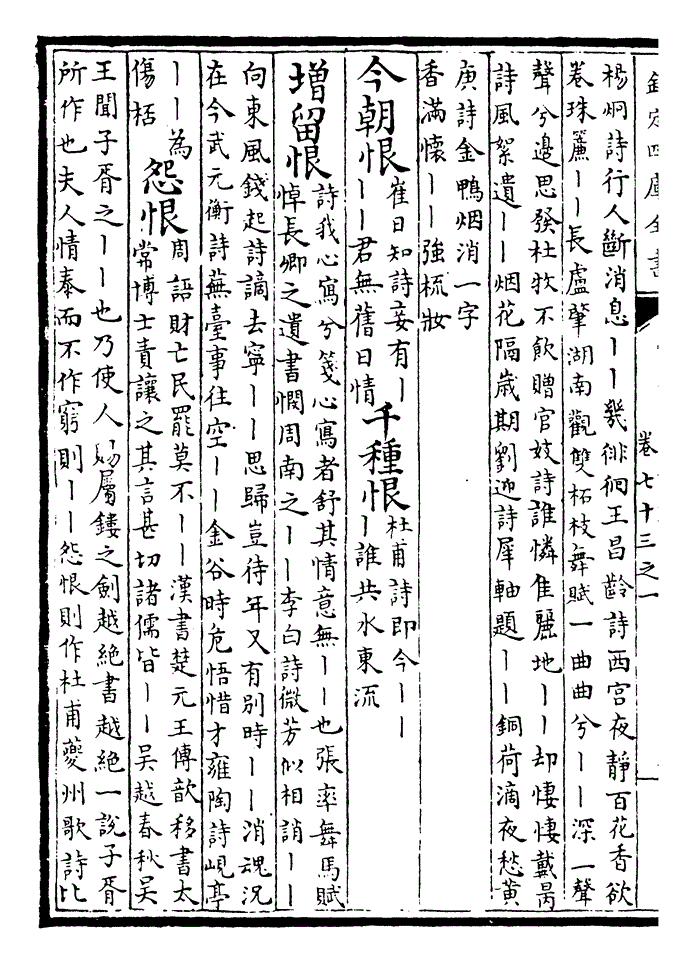 欽定四庫全書
卷七十三之一
楊炯詩行人斷消息丨丨幾徘徊王昌齡詩西宫夜靜百花香欲
卷珠簾丨丨長盧肇湖南觀雙柘枝舞賦一曲曲兮丨丨深一聲
聲兮邊思發杜牧不飲贈官妓詩誰憐佳麗地丨丨却悽悽戴昺
詩風絮遺丨丨烟花隔歲期劉迎詩犀軸題丨丨銅荷滴夜愁黄
庚詩金鴨烟消一字
香滿懐丨丨強梳妝
今朝恨
崔日知詩妾有丨
丨丨君無舊日情
千種恨
杜甫詩即今丨丨
丨誰共水東流
增留恨
詩我心寫兮箋心寫者舒其情意無丨丨也張率舞馬賦
悼長卿之遺書憫周南之丨丨李白詩微芳似相誚丨丨
向東風錢起詩謫去寧丨丨思歸豈待年又有别時丨丨消魂況
在今武元衡詩蕪臺事往空丨丨金谷時危悟惜才雍陶詩峴亭
丨丨為
傷栝
怨恨
周語財亡民罷莫不丨丨漢書楚元王傳歆移書太
常博士責讓之其言甚切諸儒皆丨丨吴越春秋吴
王聞子胥之丨丨也乃使人賜屬鏤之劍越絶書越絶一說子胥
所作也夫人情泰而不作窮則丨丨怨恨則作杜甫夔州歌詩比